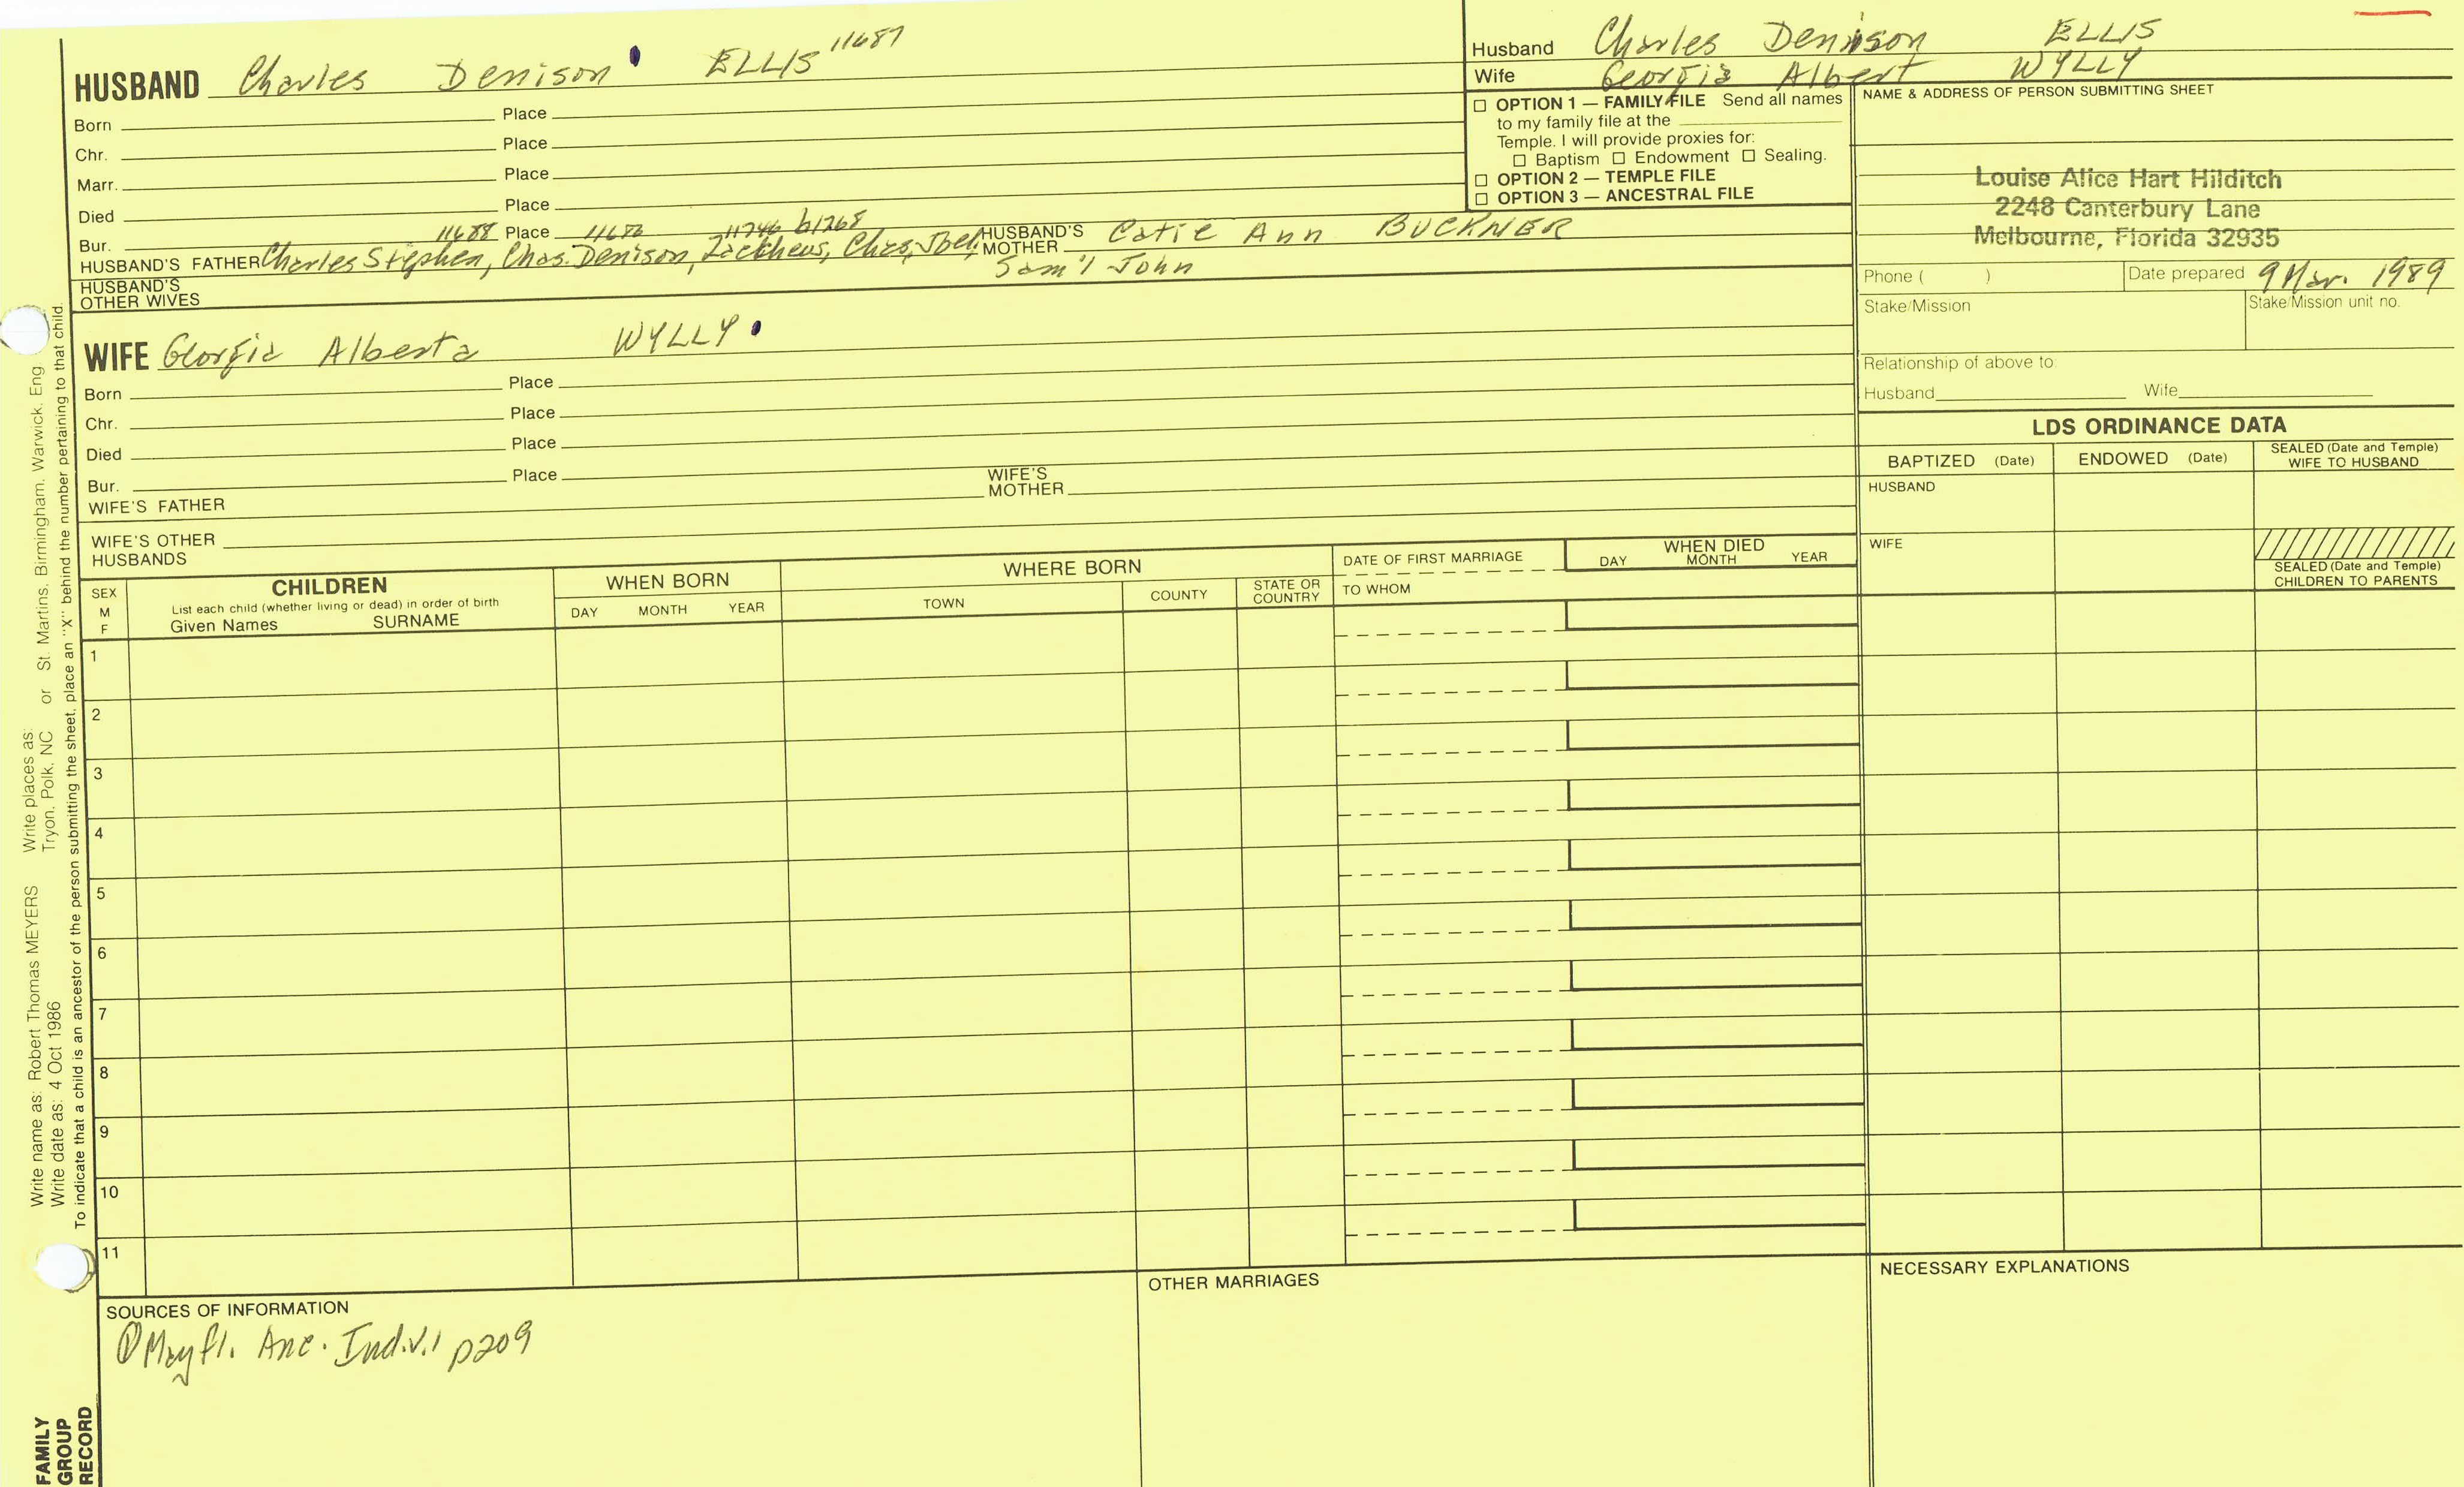 HUSBAND Charles Denison ELLIS 11687
Born Place
Chr. Place
Marr. Place
Died Place
Bur. Place
11688 11746 b1268
HUSBAND'S FATHER Charles Stephen, Chas. Denison, Zaccheus, Chas, Joel, Sam'l John
HUSBAND'S MOTHER Catie Ann BUCKNER
HUSBAND'S OTHER WIVES
WIFE Georgia Alberta WYLLY
Born Place
Chr. Place
Died Place
Bur. Place
WIFE'S FATHER WIFE'S MOTHER
WIFE'S OTHER HUSBANDS
Husband Charles Denison ELLIS
Wife Georgia Albert WYLLY
☐ OPTION 1 — FAMILY FILE Send all names
to my family file at the
Temple. I will provide proxies for:
☐ Baptism ☐ Endowment ☐ Sealing.
☐ OPTION 2 — TEMPLE FILE
☐ OPTION 3 — ANCESTRAL FILE
NAME & ADDRESS OF PERSON SUBMITTING SHEET
Louise Alice Hart Hilditch
2248 Canterbury Lane
Melbourne, Florida 32935
Phone ( ) Date prepared 9 Mar. 1989
Stake/Mission Stake/Mission unit no.
Relationship of above to:
Husband Wife
LDS ORDINANCE DATA
BAPTIZED (Date) ENDOWED (Date) SEALED (Date and Temple) WIFE TO HUSBAND
HUSBAND
WIFE
SEALED (Date and Temple)
CHILDREN TO PARENTS
SEX M F
CHILDREN
List each child (whether living or dead) in order of birth
Given Names SURNAME
WHEN BORN
DAY MONTH YEAR
WHERE BORN
TOWN COUNTY STATE OR COUNTRY
DATE OF FIRST MARRIAGE
TO WHOM
WHEN DIED
DAY MONTH YEAR
1
2
3
4
5
6
7
8
9
10
11
SOURCES OF INFORMATION
① Mayfl. Anc. Ind. v.1 p209
OTHER MARRIAGES
NECESSARY EXPLANATIONS
Write name as: Robert Thomas MEYERS Write places as:
Write date as: 4 Oct 1986 Tryon, Polk, NC or St. Martins, Birmingham, Warwick, Eng.
To indicate that a child is an ancestor of the person submitting the sheet, place an "X" behind the number pertaining to that child.
FAMILY
GROUP
RECORD